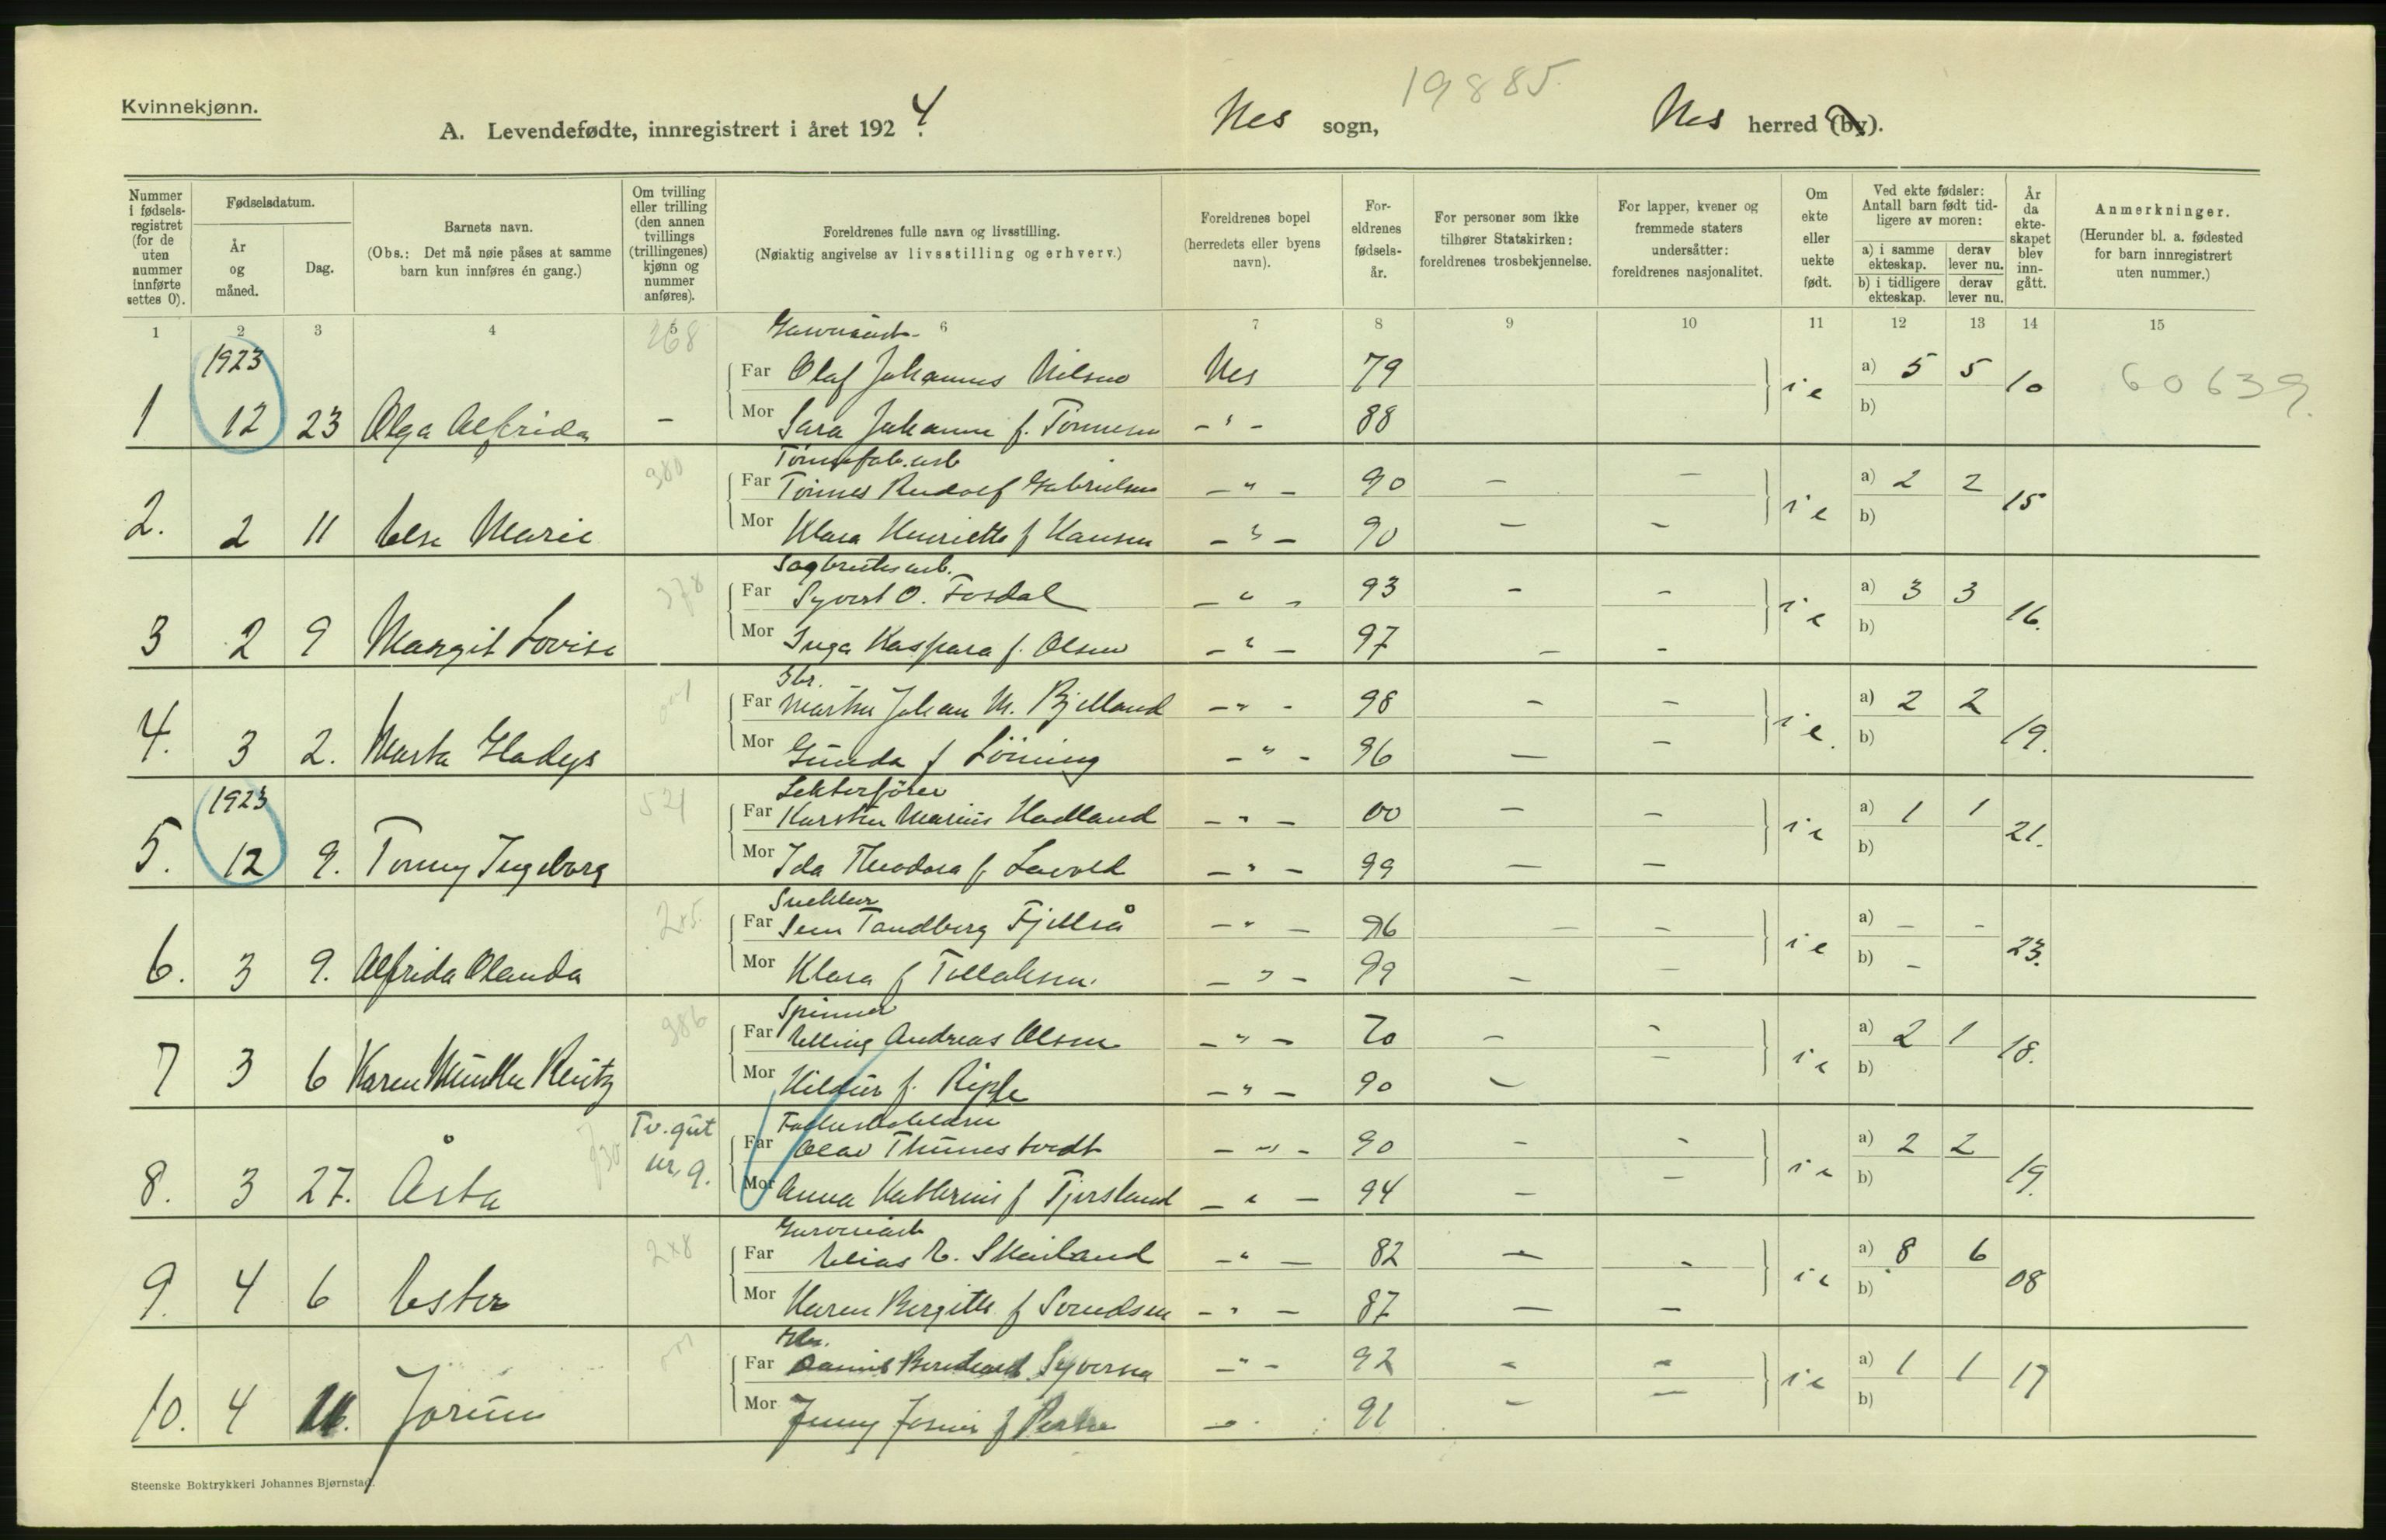 Kvinnekjønn.
19885.
A. Levendefødte, innregistrert i året 1924. Nes sogn, Nes herred (by).
Nummer i fødselsregistret (for de uten nummer innførte settes 0).
Fødselsdatum.
År og måned.
Dag.
Barnets navn.
(Obs.: Det må nøie påses at samme barn kun innføres én gang.)
Om tvilling eller trilling (den annen tvillings (trillingenes) kjønn og nummer anføres).
Foreldrenes fulle navn og livsstilling.
(Nøiaktig angivelse av livsstilling og erhverv.)
Foreldrenes bopel (herredets eller byens navn).
Foreldrenes fødselsår.
For personer som ikke tilhører Statskirken: foreldrenes trosbekjennelse.
For lapper, kvener og fremmede staters undersåtter: foreldrenes nasjonalitet.
Om ekte eller uekte født.
Ved ekte fødsler: Antall barn født tidligere av moren:
a) i samme ekteskap. derav lever nu.
b) i tidligere ekteskap. derav lever nu.
År da ekteskapet blev inngått.
Anmerkninger.
(Herunder bl. a. fødested for barn innregistrert uten nummer.)
1 2 3 4 5 6 7 8 9 10 11 12 13 14 15
1923 268 Garveriarb.
Far Olaf Johannes Nilsen Nes 79 a) 5 5 60639.
1 12 23 Olga Alfrida - Mor Sara Johanne f. Tønnesen - " - 88 i e b) 10
380 Tønnefab.arb
Far Tønnes Rudolf Gabrielsen - " - 90 - - a) 2 2
2. 2 11 Else Marie Mor Klara Henriette f Hansen - " - 90 - - i e b) 15
378 Sagbruksarb.
Far Syvert O. Fosdal - " - 93 - - a) 3 3
3 2 9 Margit Lovise Mor Inga Kaspara f. Olsen - " - 97 - - i e b) 16.
Gbr.
Far Martin Johan M. Bjelland - " - 98 - - a) 2 2
4. 3 2. Marta Gladys Mor Gunda f Løining - " - 96 - - i e. b) 19.
1923 521 Lekterfører
Far Karsten Marius Hadland - " - 00 - - a) 1 1
5. 12 9. Tonny Ingeborg Mor Ida Theodora f. Lovold - " - 99 - - i e b) 21.
2x5. Snekker
Far Sem Tandberg Fjellså - " - 96 - - a) - -
6. 3 9. Alfrida Olanda Mor Klara f Tollaksen. - " - 99 - - i e b) - 23.
386 Spinner
Far Elling Andreas Olsen - " - 70 - - a) 2 1
7 3 6 Karen Münther Reütz Mor Hildur f. Riple - " - 90 - - i e b) 18.
Tv. gut nr. 9.
Far Olav Thunes tvedt - " - 90 - - a) 2 2
8. 3 27. Åsta Mor Anna Kathrine f Tjersland - " - 94 - - i e b) 19.
2x8 Garveriarb
Far Elias E. Skailand - " - 82 - - a) 8 6
9. 4 6 Ester Mor Karen Bergitte f Svendsen - " - 87 - - i e b) 08
Gbr.
Far Bernhard Syversen - " - 92 - - a) 1 1
10. 4 Jorun Mor Jenny f 91 - - i e b) 17
Steenske Boktrykkeri Johannes Bjørnstad.